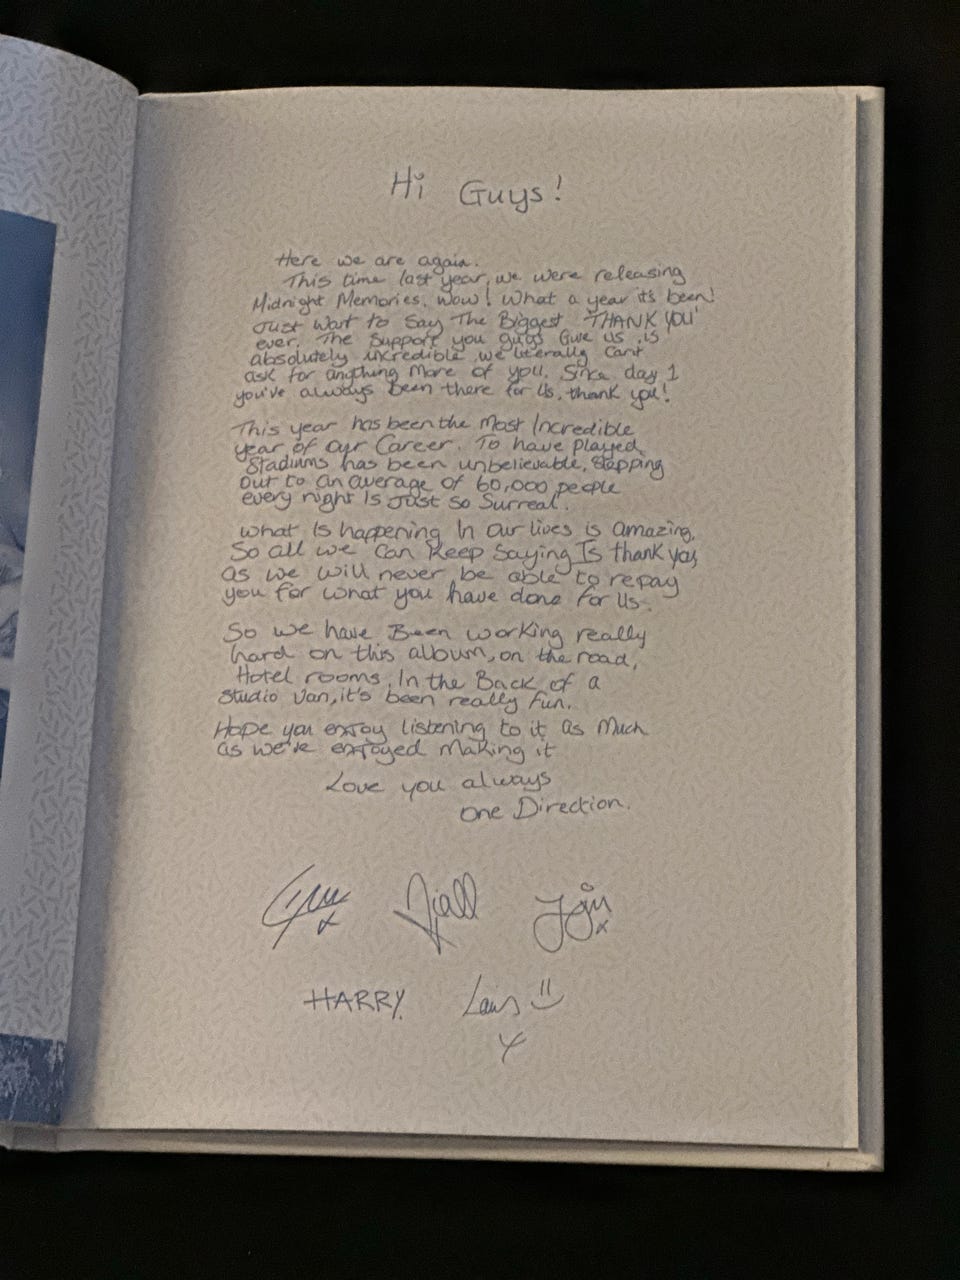 Hi Guys!
Here we are again.
This time last year, we were releasing
Midnight Memories. Wow! What a year it's been!
Just Want to Say The Biggest THANK YOU
ever. The Support you guys Give us is
absolutely incredible, we literally Can't
ask for anything More of you. Since day 1
you've always been there for Us, thank you!
This year has been the Most Incredible
year of our Career. To have played
Stadiums has been unbelievable, Stepping
Out to an average of 60,000 people
every night Is Just So Surreal.
What Is happening In Our lives is amazing,
So all we Can Keep Saying Is thank you,
as we will never be able to repay
you for what you have done for Us.
So we have Been working really
hard on this album, on the road,
Hotel rooms, In the Back of a
Studio Van, it's been really fun.
Hope you enjoy listening to it as Much
as we've enjoyed Making it
Love you always
One Direction.
Niall
HARRY.
Louis
x